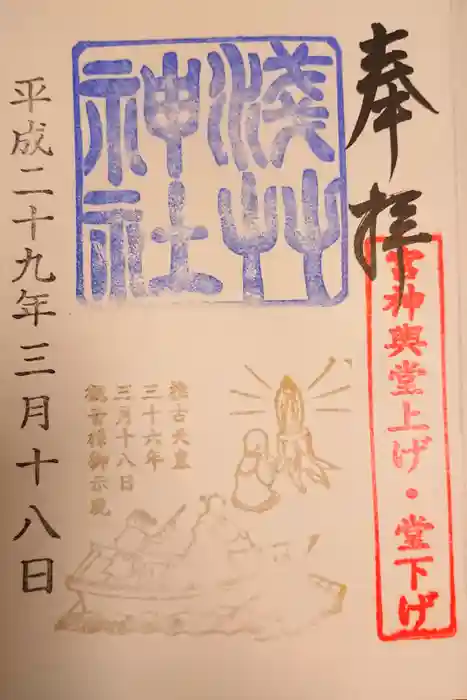 奉拝
宮神輿堂上げ・堂下げ
浅草
神社
推古天皇
三十六年
三月十八日
観音様御示現
平成二十九年三月十八日